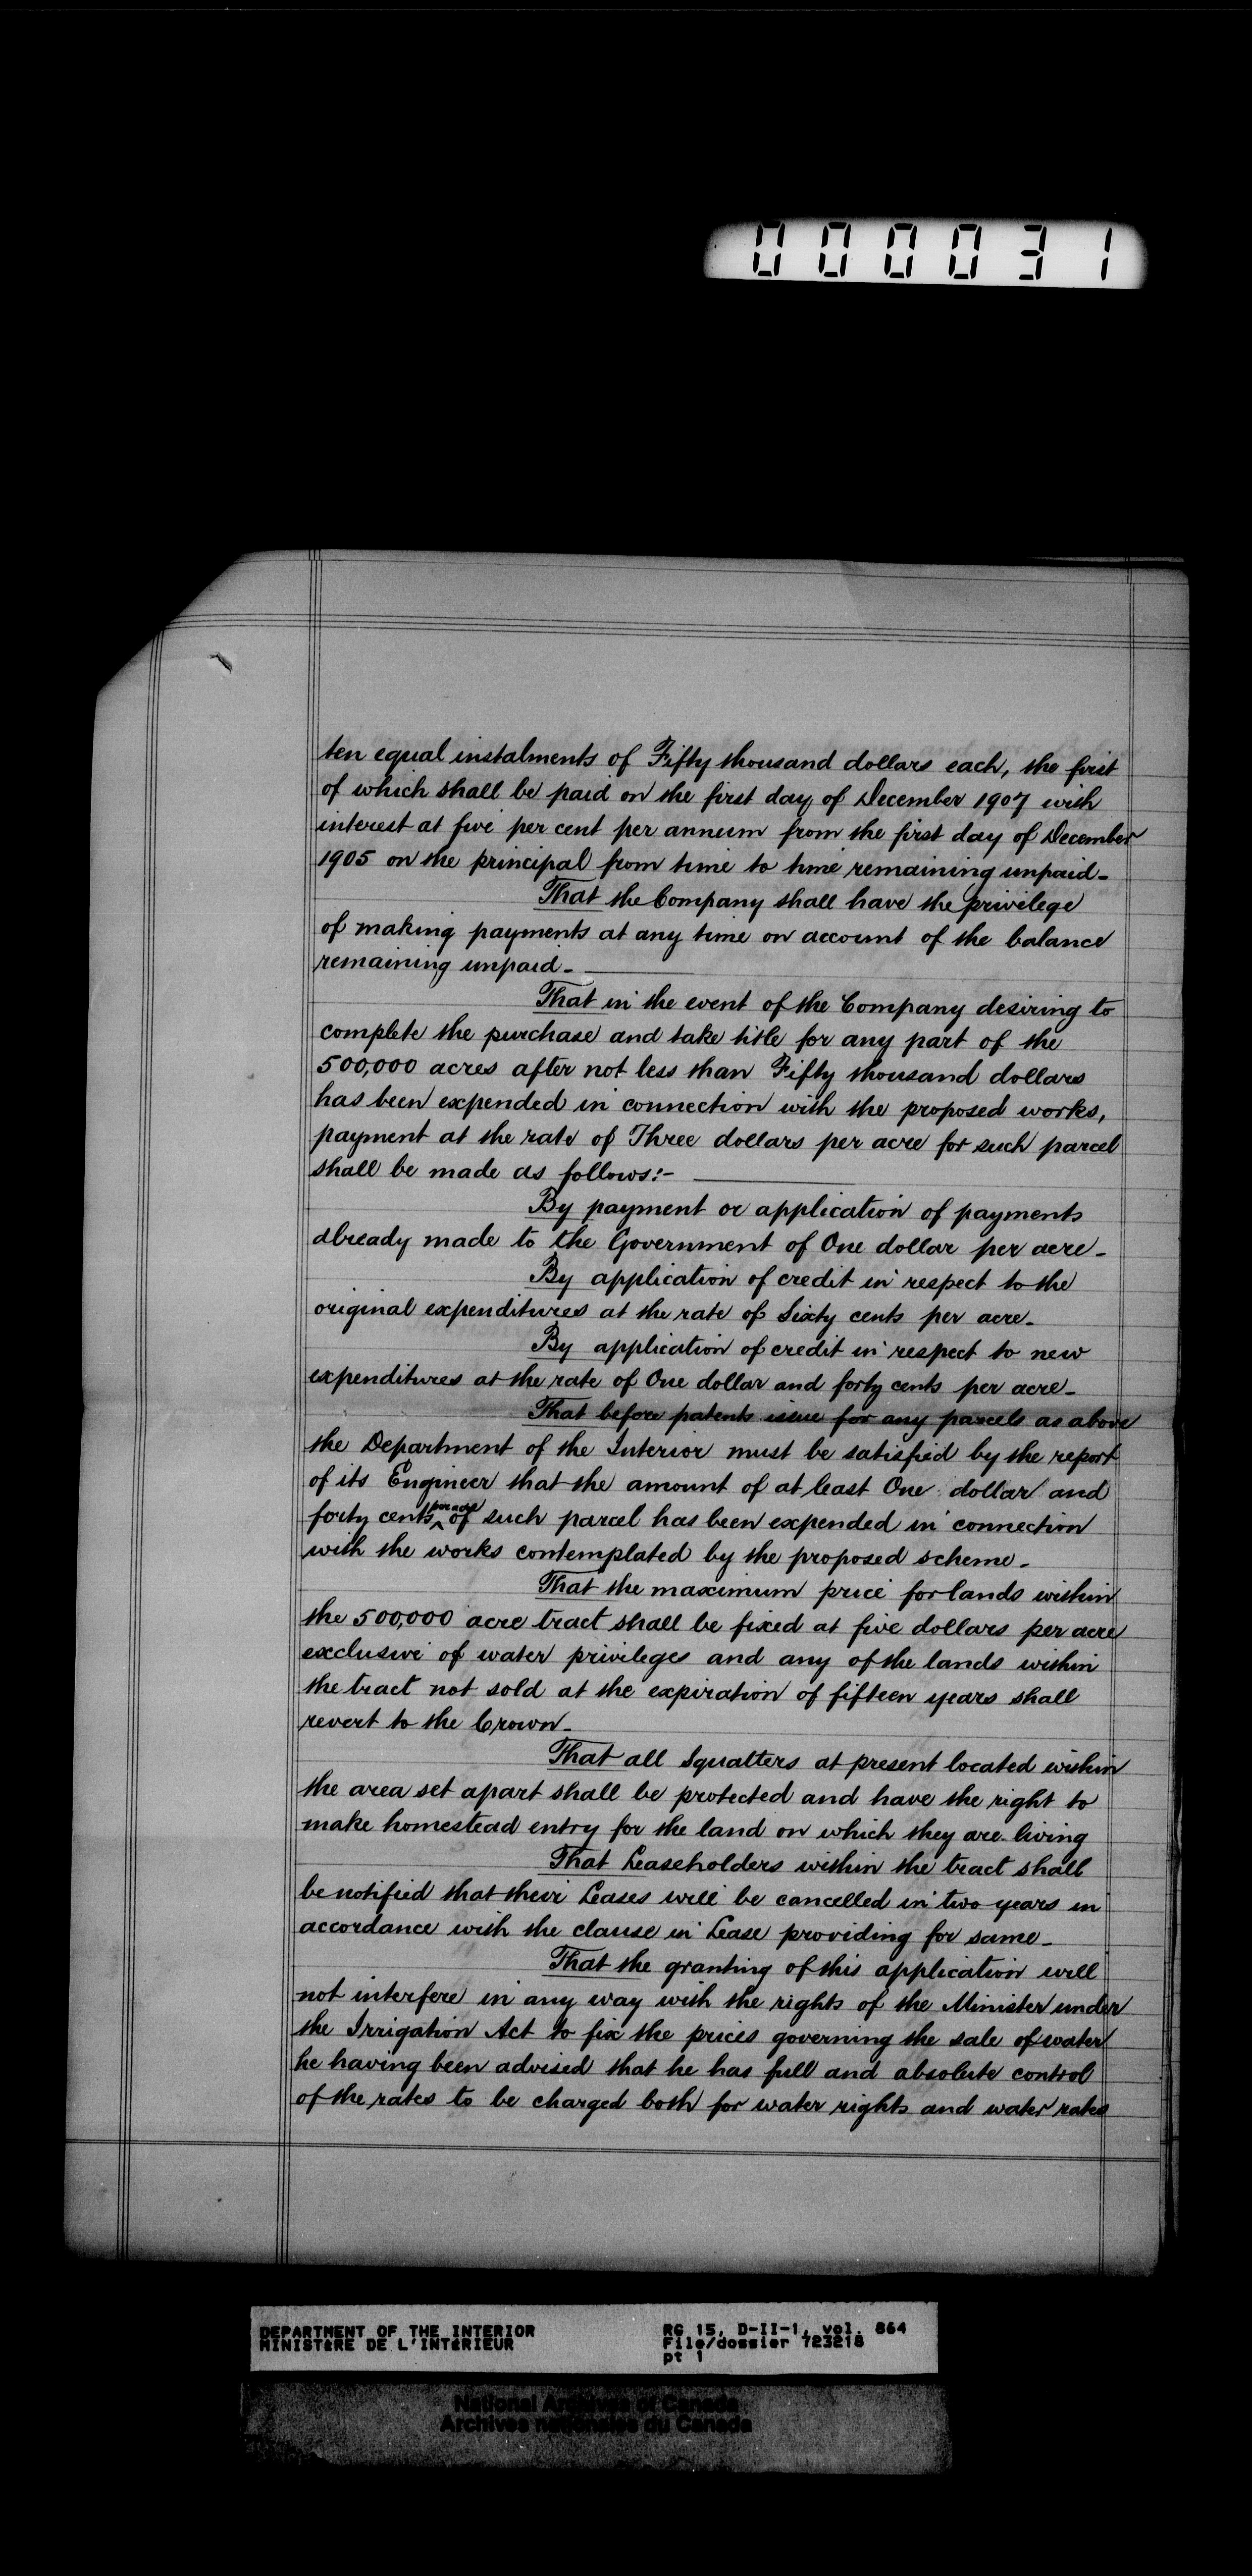 000031
ten equal instalments of Fifty thousand dollars each, the first
of which shall be paid on the first day of December 1907 with
interest at five per cent per annum from the first day of December
1905 on the principal from time to time remaining unpaid-
That the Company shall have the privilege
of making payments at any time on account of the balance
remaining unpaid-
That in the event of the Company desiring to
complete the purchase and take title for any part of the
500,000 acres after not less than Fifty thousand dollars
has been expended in connection with the proposed works,
payment at the rate of Three dollars per acre for such parcel
shall be made as follows:-
By payment or application of payments
already made to the Government of One dollar per acre-
By application of credit in respect to the
original expenditures at the rate of Sixty cents per acre-
By application of credit in respect to new
expenditures at the rate of One dollar and forty cents per acre-
That before patents issue for any parcels as above
the Department of the Interior must be satisfied by the report
of its Engineer that the amount of at least One dollar and
forty cents per acre of such parcel has been expended in connection
with the works contemplated by the proposed scheme-
That the maximum price for lands within
the 500,000 acre tract shall be fixed at five dollars per acre
exclusive of water privileges and any of the lands within
the tract not sold at the expiration of fifteen years shall
revert to the Crown-
That all Squatters at present located within
the area set apart shall be protected and have the right to
make homestead entry for the land on which they are living
That Leaseholders within the tract shall
be notified that their Leases will be cancelled in two years in
accordance with the clause in Lease providing for same-
That the granting of this application will
not interfere in any way with the rights of the Minister under
the Irrigation Act to fix the prices governing the sale of water
he having been advised that he has full and absolute control
of the rates to be charged both for water rights and water rates
DEPARTMENT OF THE INTERIOR RG 15, D-II-1, vol. 864
MINISTÈRE DE L'INTÉRIEUR File/dossier 723218
pt 1
National Archives of Canada
Archives nationales du Canada